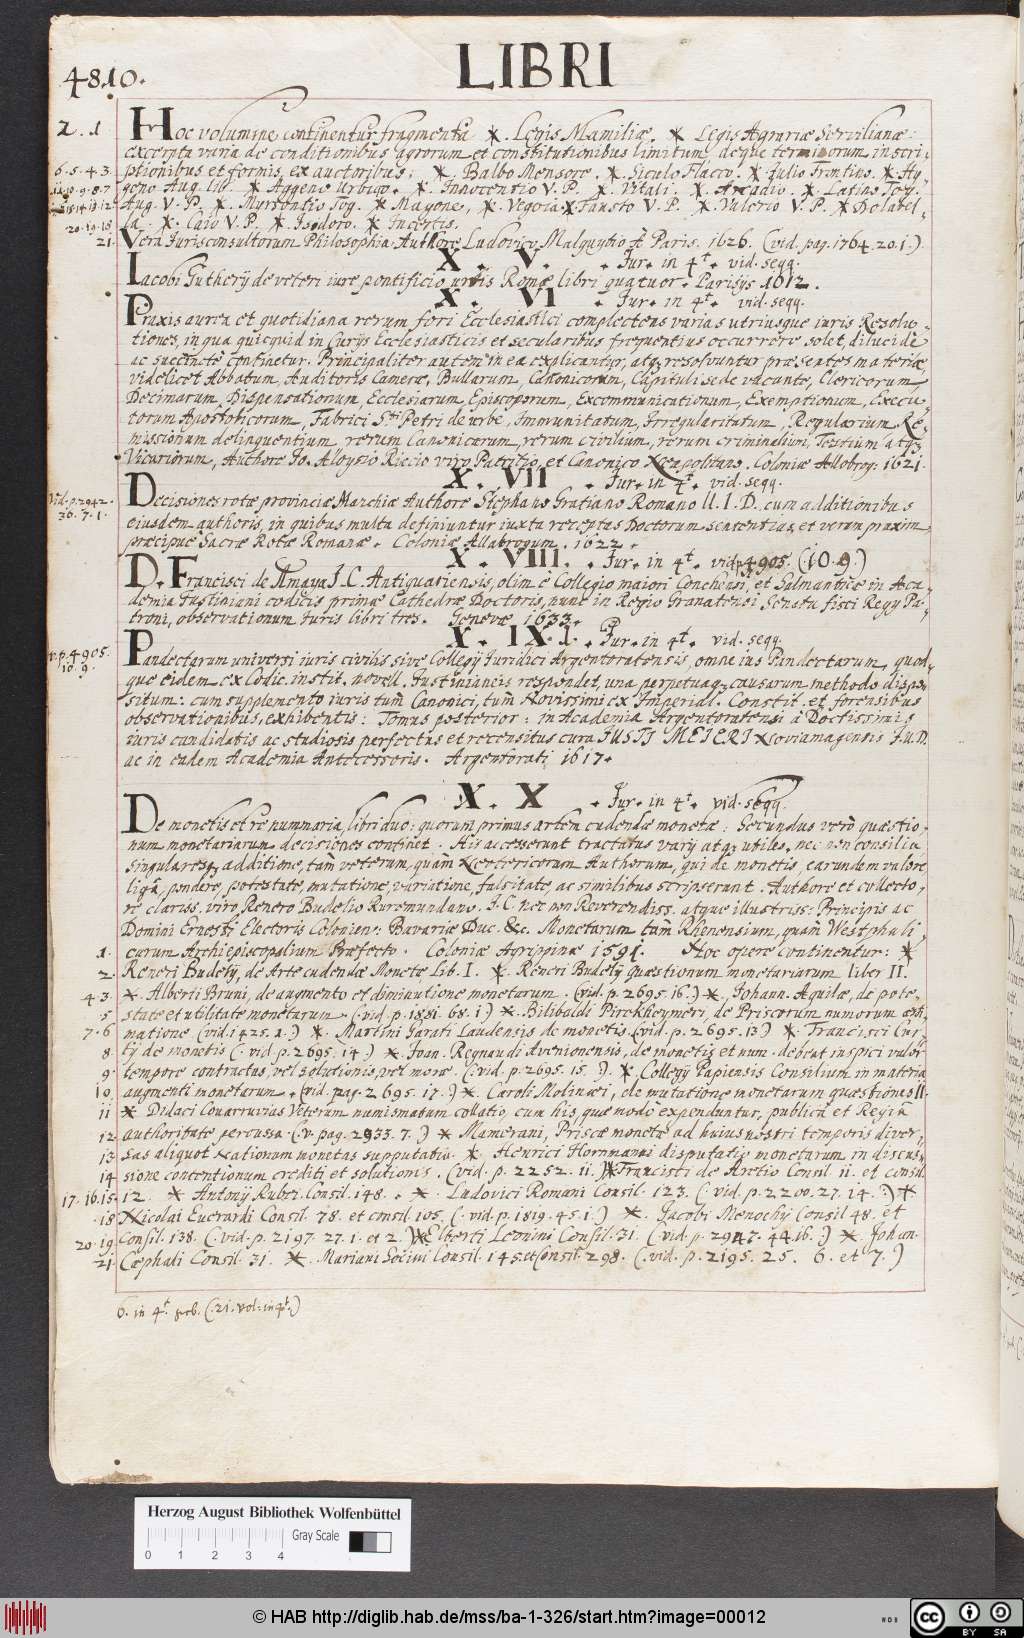 LIBRI
4810.
2. 1 Hoc volumine continentur fragmenta * Legis Mamiliæ * Legis Agrariæ Servilianæ:
excerpta varia de conditionibus agrorum et constitutionibus limitum, deque terminorum inscri-
6. 5. 4. 3. ptionibus et formis, ex auctoribus: * Balbo Mensore. * Siculo Flacco. * Julio Frontino. * Hy-
geno Aug. lib. * Aggeno Urbico. * Innocentio V. P. * Vitali. * Arcadio. * Latino Tog.
Aug. V. P. * Myrsontio Tog. * Mayone, * Vegoia * Fausto V. P. * Valerio V. P. * Dolabel-
20. 19. 18 la. * Caio V. P. * Isodoro. * Incertis.
21. Vera Jurisconsultorum Philosophia Authore Ludovico Malquytio Paris. 1626. (vid. pag. 1764. 20. 1.)
X. V. Jur. in 4t. vid. seqq.
Iacobi Gutherij de veteri iure pontificio urbis Romæ libri quatuor. Parisijs 1612.
X. VI. Jur. in 4t. vid. seqq.
Praxis aurea et quotidiana rerum fori Ecclesiastici complectens varias utriusque iuris Resolu-
tiones, in qua quicquid in Curijs Ecclesiasticis et secularibus frequentius occurrere solet, dilucidè
ac succinctè continetur. Principaliter autem in ea explicantur, atq; resolvuntur præsentes materiæ,
videlicet Abbatum, Auditoris Cameræ, Bullarum, Canonicorum, Capituli sede vacante, Clericorum
Decimarum, Dispensationum, Ecclesiarum, Episcoporum, Excommunicationum, Exemptionum, Execu-
torum Apostolicorum, Fabrici Sti Petri de urbe, Immunitatum, Irregularitatum, Regularium Re-
missionum delinquentium, rerum Canonicarum, rerum civilium, rerum criminalium, Testium atq;
Vicariorum, Authore Jo. Aloysio Riccio viro Patritio, et Canonico Neapolitano. Coloniæ Allobrog: 1621.
X. VII Jur. in 4t. vid. seqq.
Vid. p. 2942. Decisiones rotæ provinciæ Marchiæ Authore Stephano Gratiano Romano U. I. D. cum additionibus
36. 7. 1. eiusdem authoris, in quibus multa definiuntur iuxta receptas Doctorum sententias, et veram praxim
præcipue Sacræ Rotæ Romanæ. Coloniæ Allabrogum. 1622.
X. VIII. Jur. in 4t. vid. p. 4905. (10. 9.)
D. Francisci de Amaya J. C. Antiquariensis, olim è Collegio maiori Conchensi, et Salmanticæ in Aca-
demia Justiniani codicis primæ Cathedræ Doctoris, nunc in Regio Granatensi Senatu fisci Regij Pa-
troni, observationum Juris libri tres. Genevæ 1633.
X. IX. I. Jur. in 4t. vid. seqq.
v. p. 4905. Pandectarum universi iuris civilis sive Collegij Juridici Argentoratensis, omne ius Pandectarum, quod-
10. 9. que eidem ex Codic. instit. novell. Justinianeis respondet, una perpetuaq; causarum methodo dispo-
situm: cum supplemento iuris tum Canonici, tum Novissimi ex Imperial. Constit. et forensibus
observationibus, exhibentis: Tomus posterior: in Academia Argentoratensi à Doctissimis
iuris candidatis ac studiosis perfectus et recensitus cura JUSTJ MEIERI Noviamagensis J. U. D.
ac in eadem Academia Antecessoris. Argentorati 1617.
X. X Jur. in 4t. vid. seqq.
De monetis et re nummaria, libri duo: quorum primus artem cudendæ monetæ: Secundus verò quæstio-
num monetariarum decisiones continet. His accesserunt tractatus varij atq; utiles, nec non consilia
singularesq; additiones, tàm veterum, quàm Neotericorum Authorum, qui de monetis, earundem valore,
liga, pondere, potestate, mutatione, variatione, falsitate ac similibus scripserunt. Authore et collecto-
re clariss. viro Renero Budelio Ruremundano. J. C. nec non Reverendiss. atque illustriss: Principis ac
Domini Ernesti Electoris Coloniens: Bavariæ Duc. &c. Monetarum tàm Rhenensium, quàm Westphali
1. carum Archiepiscopalium Præfecto. Coloniæ Agrippinæ 1591. Hoc opere continentur: *
2. Reneri Budelij, de Arte cudendæ Monetæ Lib. I. * Reneri Budelij quæstionum monetariarum liber II.
4 3. * Alberti Bruni, de augmento et diminutione monetarum. (vid. p. 2695. 16.) * Johann. Aquilæ, de pote-
5 state et utilitate monetarum (. vid. p. 1881. 68. 1.) * Bilibaldi Pirckheymeri, de Priscorum numorum æsti-
7. 6 matione (vid. 1425. 2.) * Martini Garati Laudensis de monetis (vid. p. 2695. 13) * Francisci Cur-
8. tij de monetis (. vid. p. 2695. 14.) * Joan. Regnaudi Avenionensis, de monetis et num. debeat inspici valor
9. tempore contractus, vel solutionis, vel moræ (. vid. p. 2695. 15.) * Collegij Papiensis Consilium in materia
10 augmenti monetarum. (vid. pag. 2695. 17.) * Caroli Molinæi, de mutatione monetarum quæstiones II.
11 * Didaci Covarruvias Veterum numismatum collatio, cum his, quæ modò expenduntur, publicâ et Regiâ
12. authoritate percussa. (v. pag. 2933. 7.) * Mamerani, Priscæ monetæ ad huius nostri temporis diver-
13. sas aliquot Nationum monetas supputatio. * Henrici Hornmanni disputatio monetarum in discus-
14. sione contentionum crediti et solutionis. (vid. p. 2252. 11.) * Francisci de Aretio Consil. 11. et consil
17. 16. 15. 12. * Antonij Rubei Consil. 148. * Ludovici Romani Consil. 123. (. vid. p. 2200. 27. 14.) *
18 Nicolai Everardi Consil. 78. et consil. 105. (. vid. p. 1819. 45. 1.) * Jacobi Menochij Consil 48. et
20. 19. Consil. 138. (. vid. p. 2197. 27. 1. et 2.) * Elberti Leonini Consil. 31. (vid. p. 2947. 44. 16.) * Johan.
21. Cæphali Consil. 31. * Mariani Socini Consil. 145. et Consil 298. (. vid. p. 2195. 25. 6. et 7.)
(. 21. vol: in 4t.)
Herzog August Bibliothek Wolfenbüttel
Gray Scale
0 1 2 3 4
© HAB http://diglib.hab.de/mss/ba-1-326/start.htm?image=00012
cc BY SA